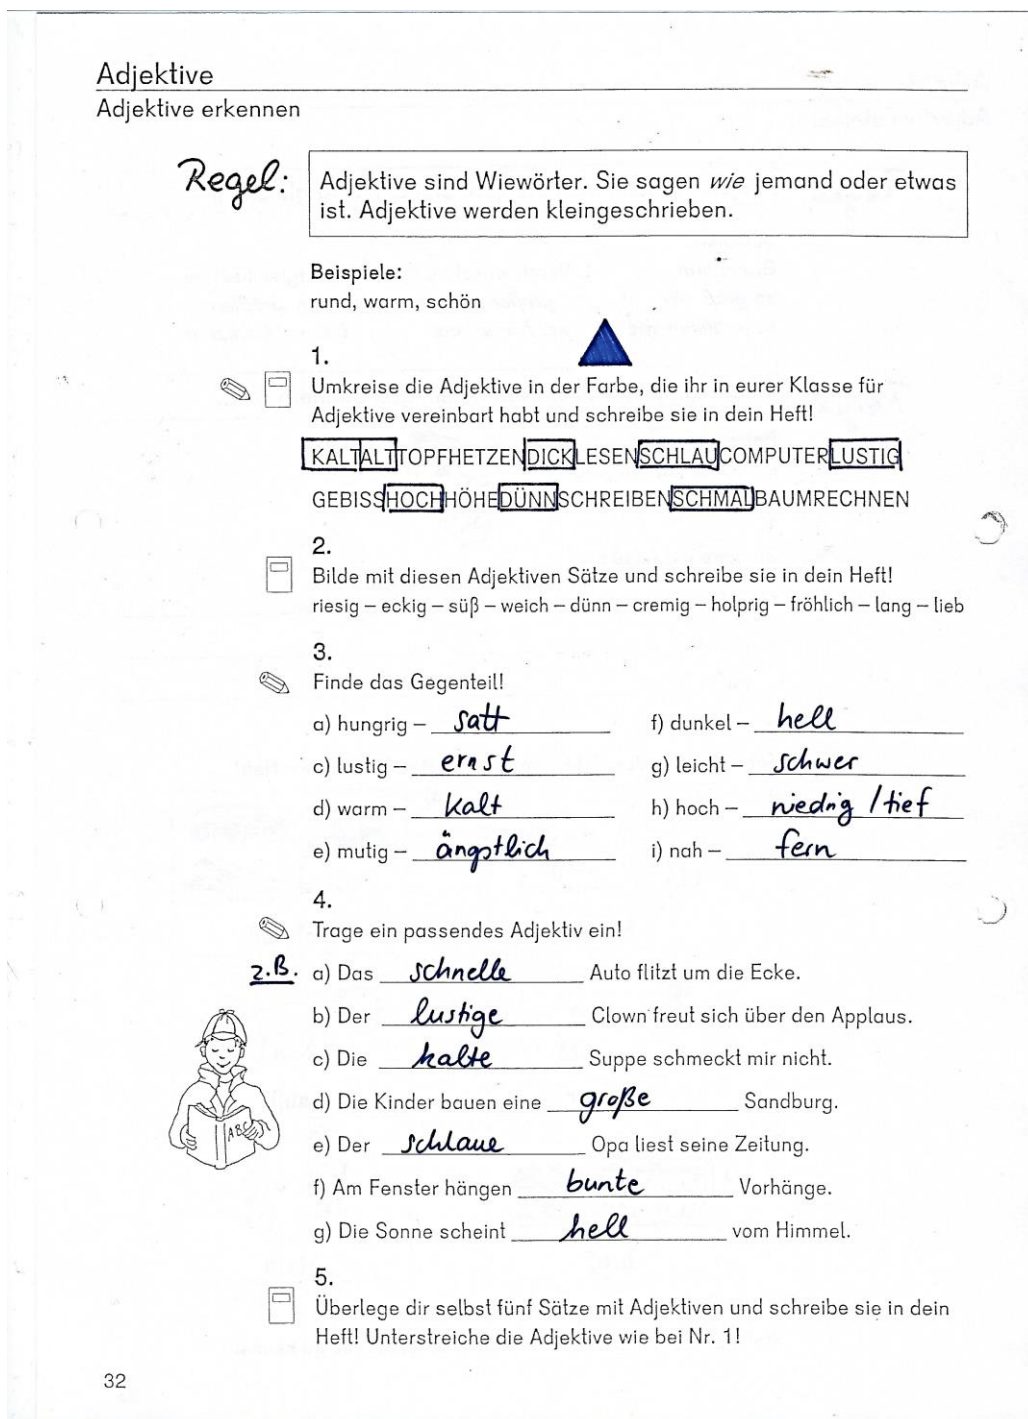 Adjektive
Adjektive erkennen
Regel:
Adjektive sind Wiewörter. Sie sagen wie jemand oder etwas
ist. Adjektive werden kleingeschrieben.
Beispiele:
rund, warm, schön
1.
Umkreise die Adjektive in der Farbe, die ihr in eurer Klasse für
Adjektive vereinbart habt und schreibe sie in dein Heft!
KALTALTTOPFHETZENDICKLESENSCHLAUCOMPUTERLUSTIG
GEBISSHOCHHÖHEDÜNNSCHREIBENSCHMALBAUMRECHNEN
2.
Bilde mit diesen Adjektiven Sätze und schreibe sie in dein Heft!
riesig – eckig – süß – weich – dünn – cremig – holprig – fröhlich – lang – lieb
3.
Finde das Gegenteil!
a) hungrig – satt f) dunkel – hell
c) lustig – ernst g) leicht – schwer
d) warm – kalt h) hoch – niedrig / tief
e) mutig – ängstlich i) nah – fern
4.
Trage ein passendes Adjektiv ein!
z.B. a) Das schnelle Auto flitzt um die Ecke.
b) Der lustige Clown freut sich über den Applaus.
c) Die kalte Suppe schmeckt mir nicht.
d) Die Kinder bauen eine große Sandburg.
e) Der schlaue Opa liest seine Zeitung.
ABC
f) Am Fenster hängen bunte Vorhänge.
g) Die Sonne scheint hell vom Himmel.
5.
Überlege dir selbst fünf Sätze mit Adjektiven und schreibe sie in dein
Heft! Unterstreiche die Adjektive wie bei Nr. 1!
32